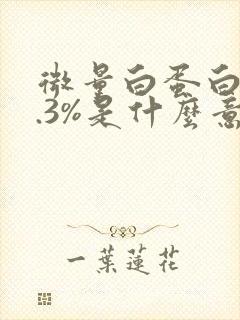 微量白蛋白
.3%是什麼意
一葉蓮花